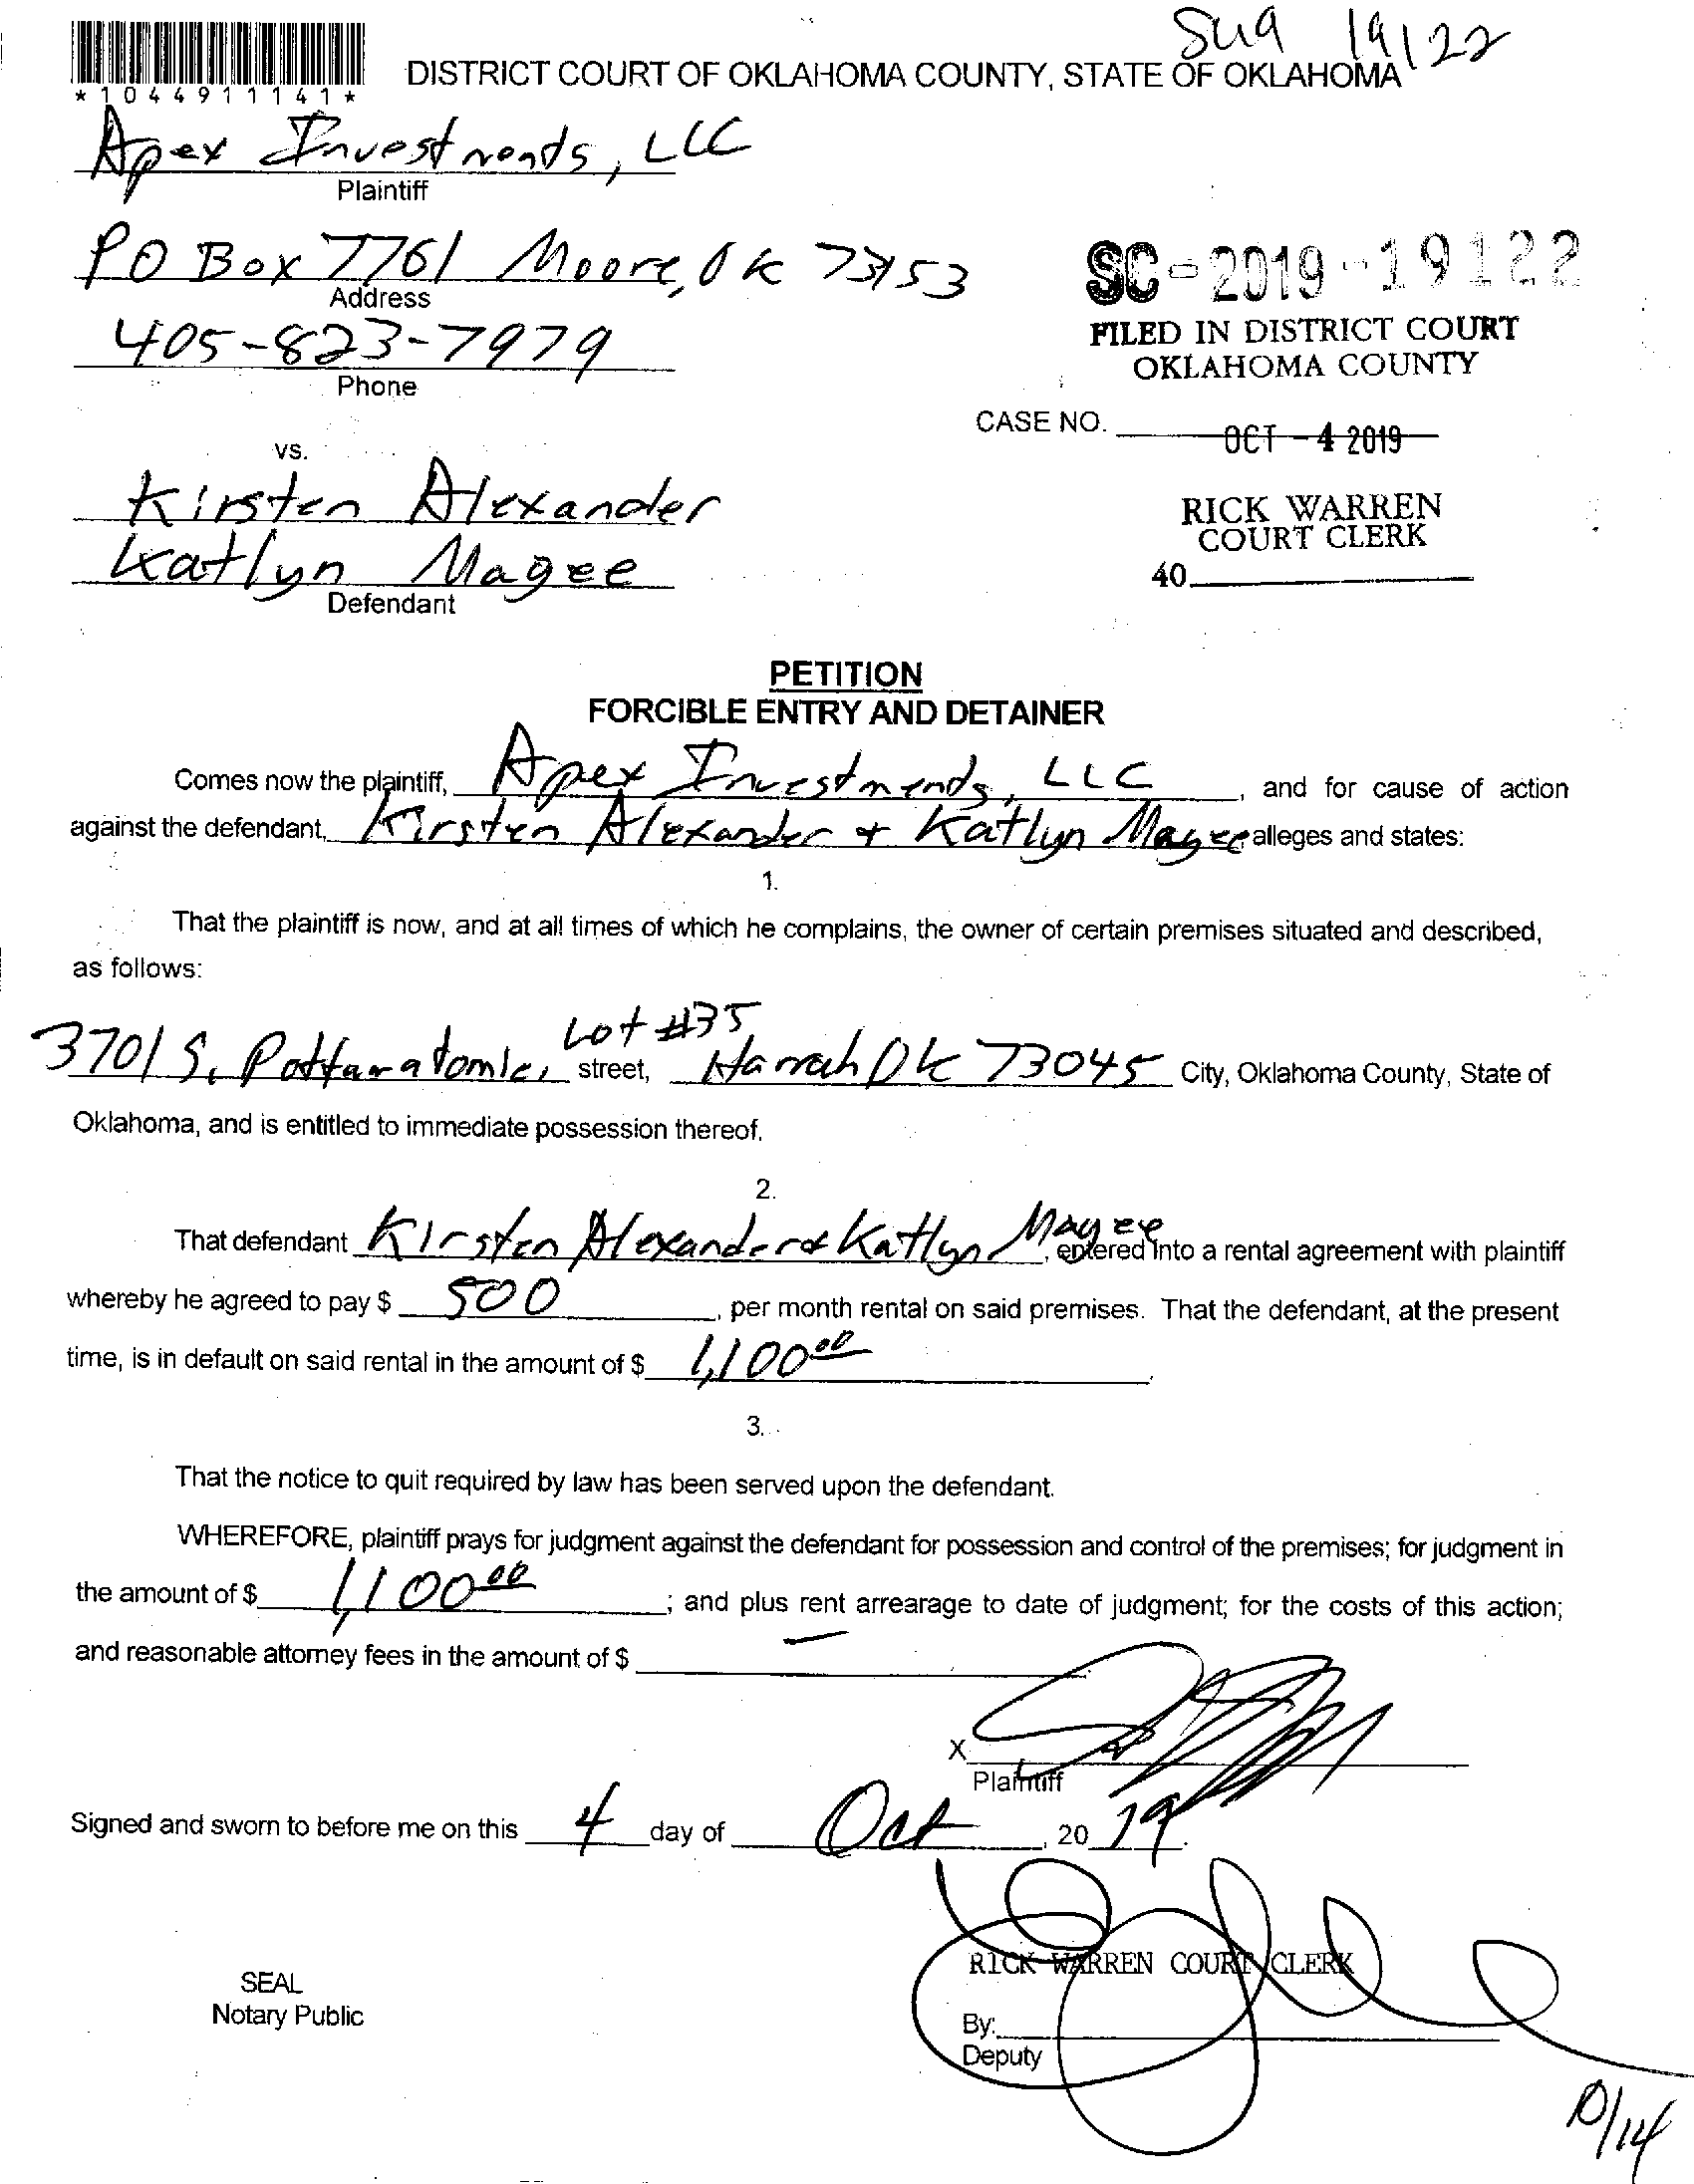 19122
DISTRICT COURT OF OKLAHOMA COUNTY, STATE OF OKLAHOMA
*1044911141*
Apex Investments, LLC
Plaintiff
PO Box 7761 Moore, Ok 73153
Address
SC-2019-19122
405-823-7979
Phone
FILED IN DISTRICT COURT
OKLAHOMA COUNTY
CASE NO.
OCT - 4 2019
vs.
Kirsten Alexander
RICK WARREN
COURT CLERK
Katlyn Magee
Defendant
40
PETITION
FORCIBLE ENTRY AND DETAINER
Comes now the plaintiff, Apex Investments, LLC, and for cause of action
against the defendant, Kirsten Alexander + Katlyn Magee alleges and states:
1.
That the plaintiff is now, and at all times of which he complains, the owner of certain premises situated and described,
as follows:
Lot #35
3701 S. Pottawatomie, street, Harrah Ok 73045 City, Oklahoma County, State of
Oklahoma, and is entitled to immediate possession thereof.
2.
That defendant Kirsten Alexander & Katlyn Magee, entered into a rental agreement with plaintiff
whereby he agreed to pay $ 500, per month rental on said premises. That the defendant, at the present
time, is in default on said rental in the amount of $ 1,100.00.
3.
That the notice to quit required by law has been served upon the defendant.
WHEREFORE, plaintiff prays for judgment against the defendant for possession and control of the premises; for judgment in
the amount of $ 1,100.00; and plus rent arrearage to date of judgment; for the costs of this action;
and reasonable attorney fees in the amount of $ —
X
Plaintiff
Signed and sworn to before me on this 4 day of Oct, 20 19.
RICK WARREN COURT CLERK
SEAL
Notary Public
By:
Deputy
10/14